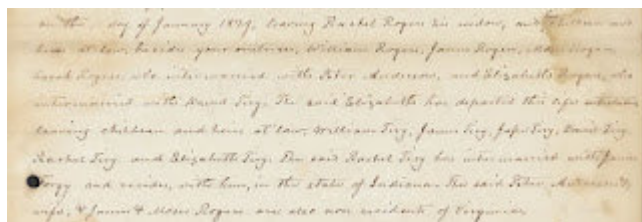 on the day of January 1829, leaving Rachel Rogers his widow, and children and
heirs at law, besides your orator, William Rogers, James Rogers, Moses Rogers
Sarah Rogers, who intermarried with Peter Anderson, and Elizabeth Rogers, who
intermarried with David Tivy. The said Elizabeth has departed this life
leaving children and heirs at law, William Tivy, James Tivy, Tivy, David Tivy
Rachel Tivy and Elizabeth Tivy. The said Rachel Tivy has intermarried with
and resides, with him, in the state of Indiana. The said Peter
wife, & James & Moses Rogers are also non residents of Virginia.